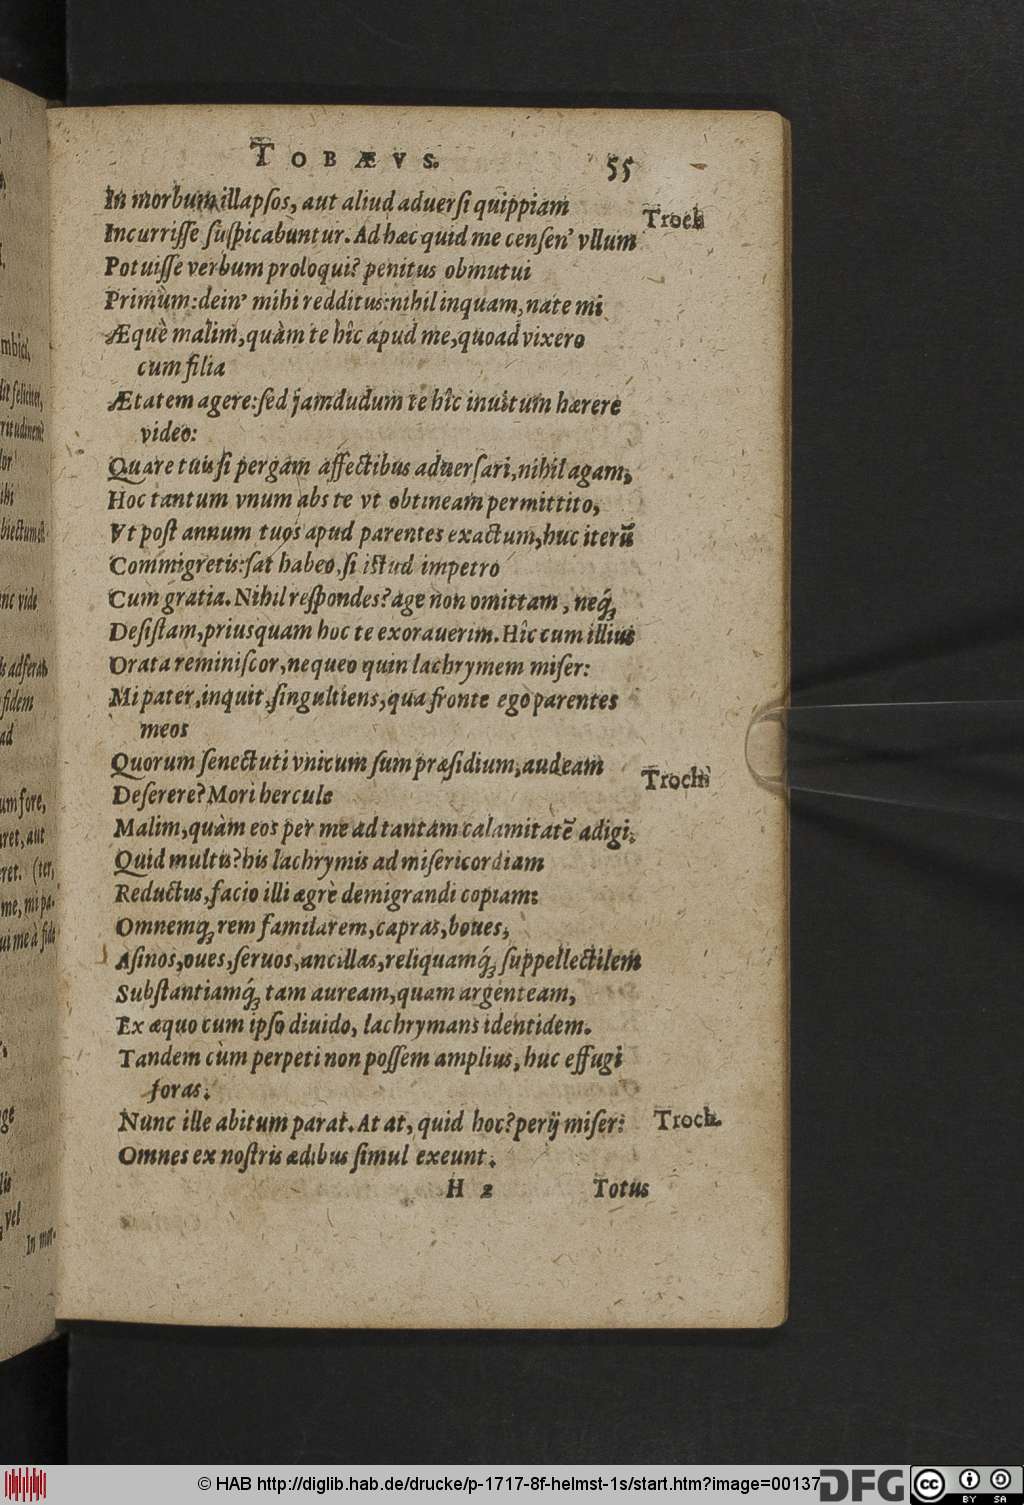 TOBÆVS.
55
In morbum illapſos, aut aliud aduerſi quippiam
Troch
Incurriſſe ſuſpicabuntur. Ad hæc quid me cenſen' vllum
Potuiſſe verbum proloqui? penitus obmutui
Primùm: dein' mihi redditus: nihil inquam, nate mi
Æquè malim, quàm te hîc apud me, quoad vixero
cum filia
Ætatem agere: ſed jamdudum te hîc inuitum hærere
video:
Quare tuis ſi pergam affectibus aduerſari, nihil agam;
Hoc tantum vnum abs te vt obtineam permittito,
Vt poſt annum tuos apud parentes exactum, huc iterũ
Commigretis: ſat habeo, ſi iſtud impetro
Cum gratia. Nihil reſpondes? age non omittam, neq́;
Deſiſtam, priusquam hoc te exorauerim. Hîc cum illius
Orata reminiſcor, nequeo quin lachrymem miſer:
Mi pater, inquit, ſingultiens, qua fronte ego parentes
meos
Quorum ſenectuti vnicum ſum præſidium, audeam
Troch
Deſerere? Mori hercule
Malim, quàm eos per me ad tantam calamitatẽ adigi.
Quid multis? his lachrymis ad miſericordiam
Reductus, facio illi ægrè demigrandi copiam:
Omnemq; rem familarem, capras, boues,
Aſinos, oues, ſeruos, ancillas, reliquamq́; ſuppellectilem
Subſtantiamq́; tam auream, quam argenteam,
Ex æquo cum ipſo diuido, lachrymans identidem.
Tandem cùm perpeti non poſſem amplius, huc effugi
foras.
Nunc ille abitum parat. At at, quid hoc? perij miſer:
Troch.
Omnes ex noſtris ædibus ſimul exeunt.
H 2
Totus
mbici,
dit feliciter,
ritudinem?
lor
ihi
biectum eſt
nc vide
ls adferat
fidem
ad
um fore,
ret, aut
ret. (ter,
me, mi pa-
ui me à fide
ge
lis
vel
In mor-
© HAB http://diglib.hab.de/drucke/p-1717-8f-helmst-1s/start.htm?image=00137
DFG
cc
BY SA